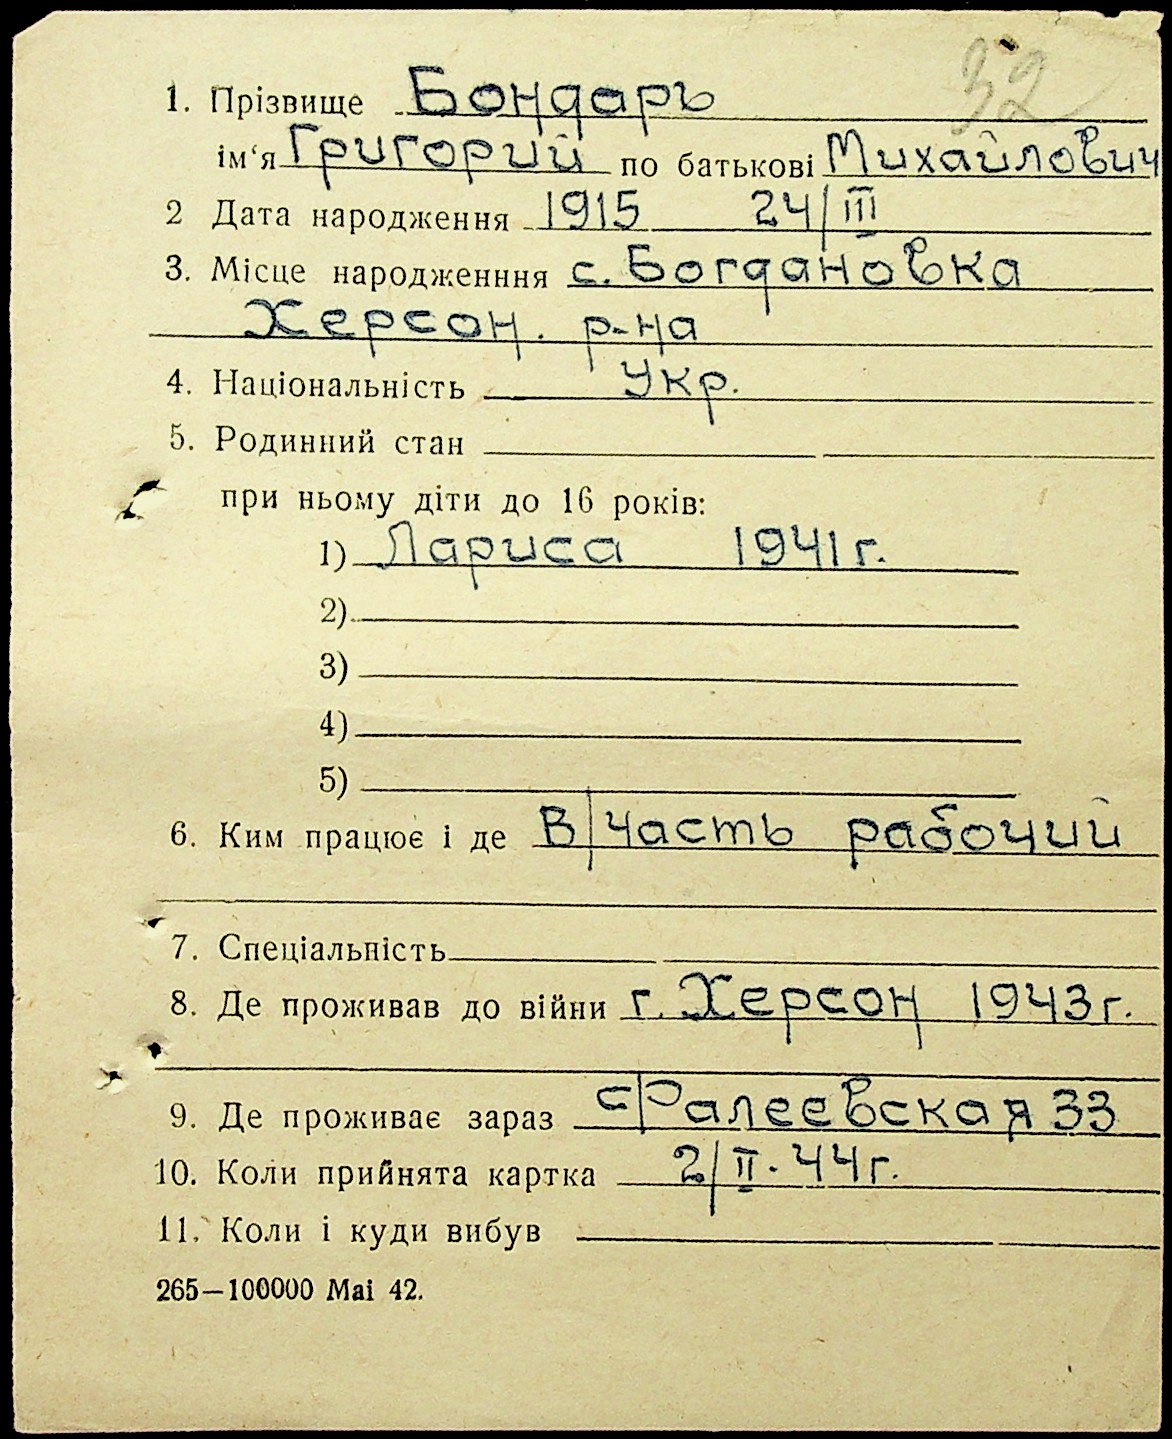 32
1. Прізвище Бондарь
ім‘я Григорий по батькові Михайлович
2 Дата народження 1915 24/III
3. Місце народженння с. Богдановка
Херсон. р-на
4. Національність Укр.
5. Родинний стан
при ньому діти до 16 років:
1) Лариса 1941 г.
2)
3)
4)
5)
6. Ким працює і де В/часть рабочий
7. Спеціальність
8. Де проживав до війни г. Херсон 1943 г.
9. Де проживає зараз с/Фалеевская 33
10. Коли прийнята картка 2/II. 44 г.
11. Коли і куди вибув
265—100000 Mai 42.